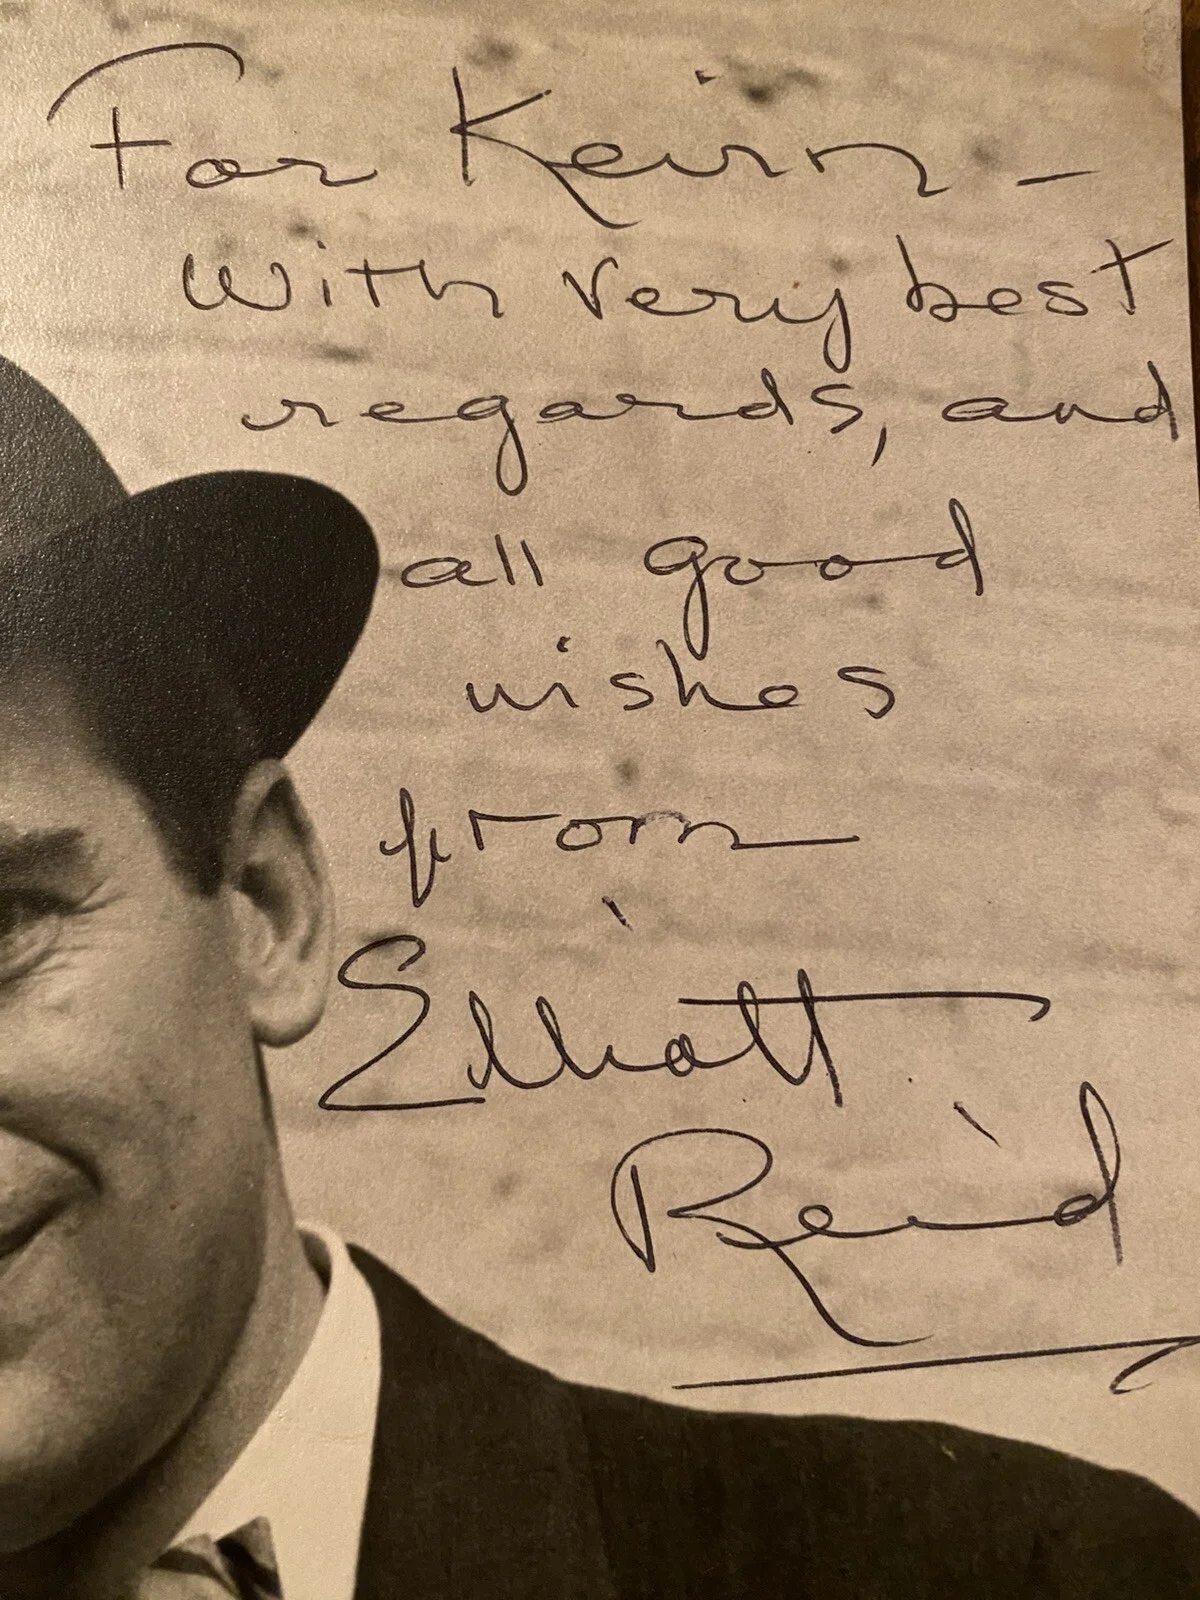 For Keirn -
With very best
regards, and
all good
wishes
from
Elliott
Reid